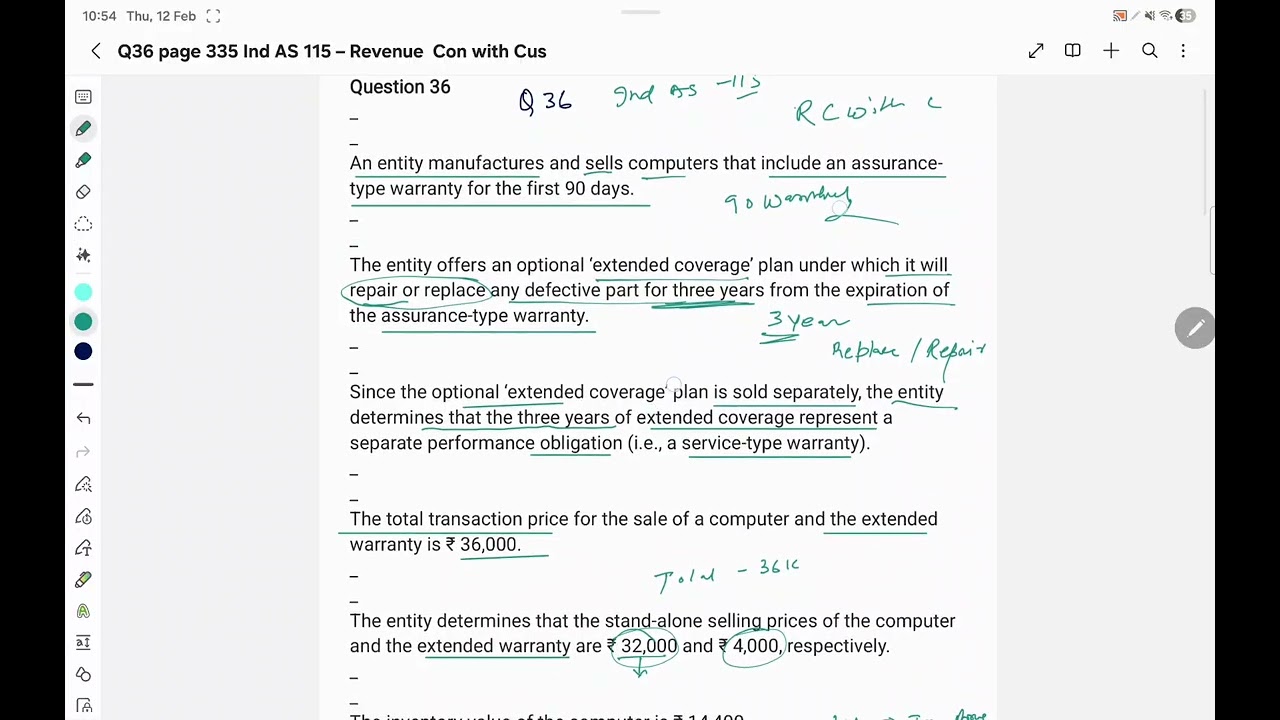 10:54 Thu, 12 Feb 35
Q36 page 335 Ind AS 115 – Revenue Con with Cus
Question 36
Q 36 Ind AS -115
RC with C
–
–
An entity manufactures and sells computers that include an assurance-
type warranty for the first 90 days.
90 Warranty
–
–
The entity offers an optional ‘extended coverage’ plan under which it will
repair or replace any defective part for three years from the expiration of
the assurance-type warranty.
3 year
Replace / Repair
–
–
Since the optional ‘extended coverage’ plan is sold separately, the entity
determines that the three years of extended coverage represent a
separate performance obligation (i.e., a service-type warranty).
–
–
The total transaction price for the sale of a computer and the extended
warranty is ₹ 36,000.
Total - 36K
–
–
The entity determines that the stand-alone selling prices of the computer
and the extended warranty are ₹ 32,000 and ₹ 4,000, respectively.
–
–
The inventory value of the computer is ₹ 14,400.